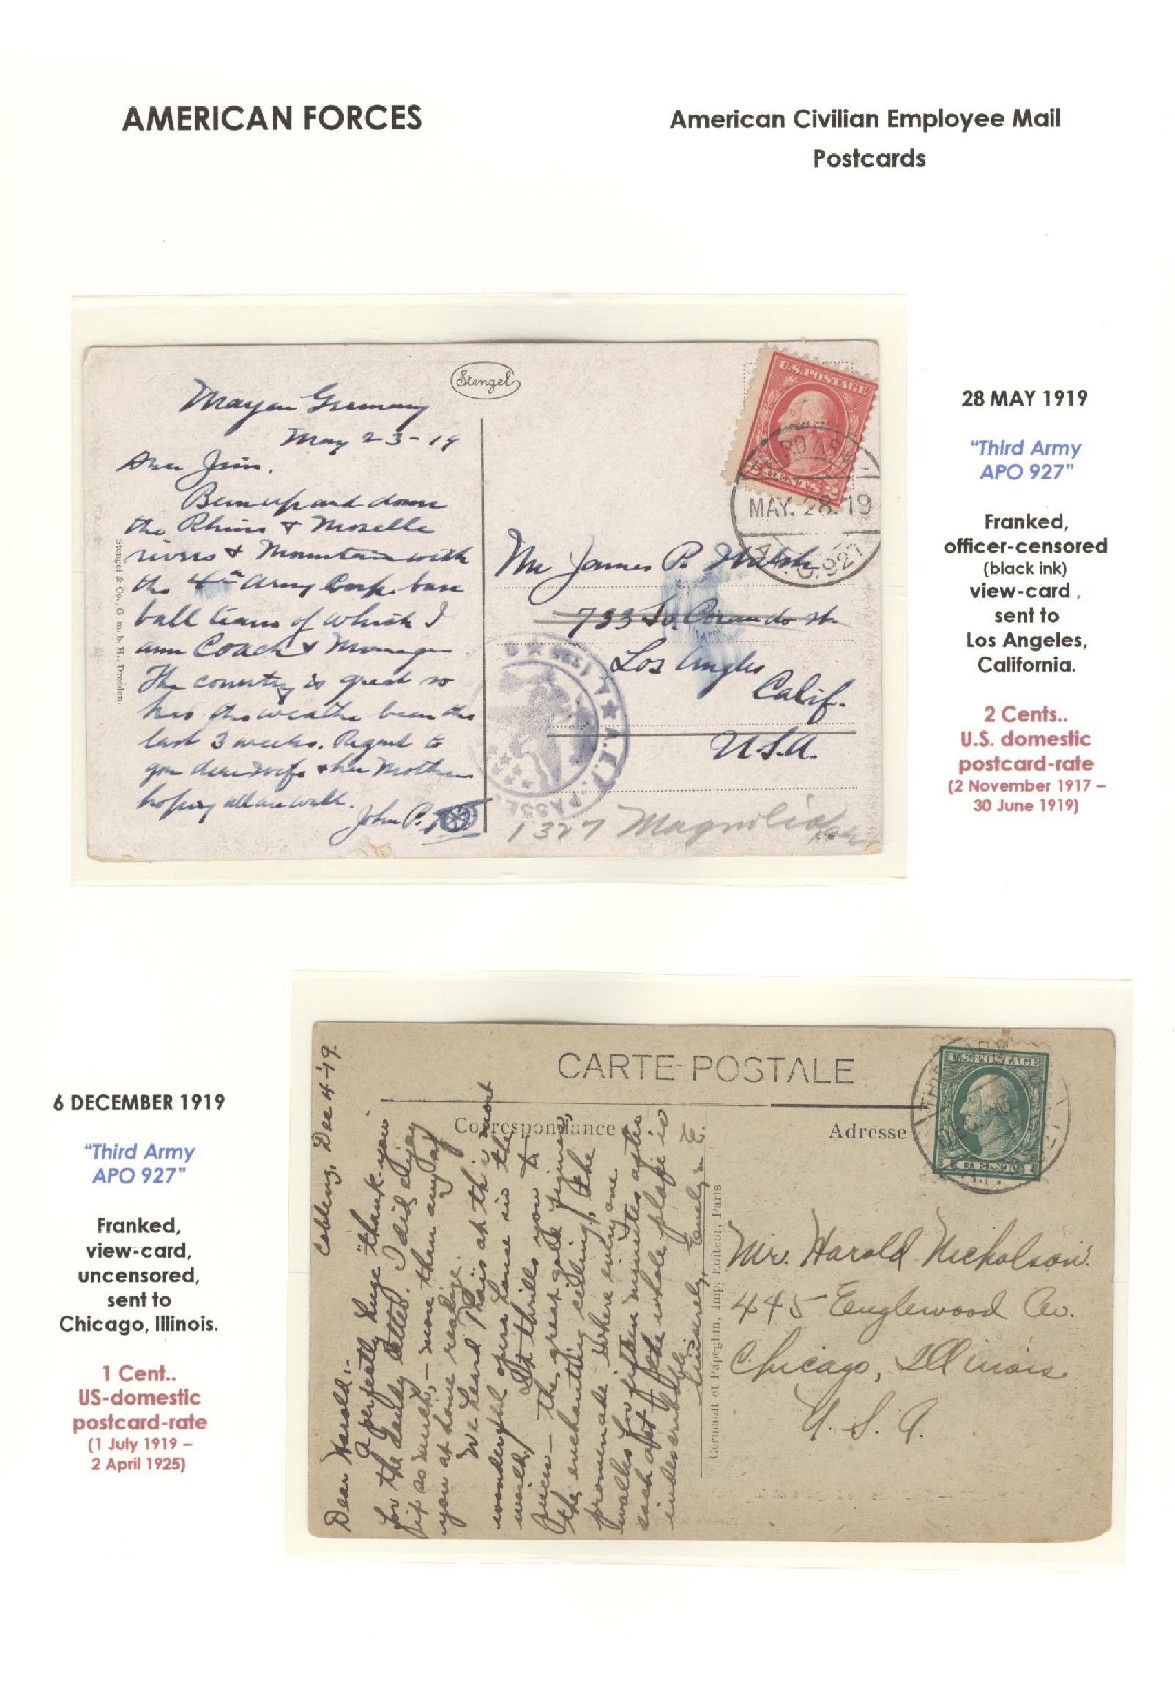 AMERICAN FORCES
American Civilian Employee Mail
Postcards
Stengel
Mayen Germany
May 23-19
Dear Jim.
Been up and down
the Rhine & Moselle
rivers & Mountain with
the 4th Army Corp. base
ball team of which I
am Coach & Manager
The country is great so
has the weather been the
last 3 weeks. Regard to
you dear wife & her Mother
hoping all are well.
John P.
Stengel & Co., G. m. b. H., Dresden.
U.S. POSTAGE
2 CENTS 2
MAY. 28. 19
A.P.O. 927
Mr James P. Walsh
733 So. St.
Los Angles
Calif.
U.S.A.
A.E.F. PASSED
1327 Magnolia
28 MAY 1919
"Third Army
APO 927"
Franked,
officer-censored
(black ink)
view-card ,
sent to
Los Angeles,
California.
2 Cents..
U.S. domestic
postcard-rate
(2 November 1917 –
30 June 1919)
6 DECEMBER 1919
"Third Army
APO 927"
Franked,
view-card,
uncensored,
sent to
Chicago, Illinois.
1 Cent..
US-domestic
postcard-rate
(1 July 1919 –
2 April 1925)
CARTE POSTALE
Correspondance
Adresse
U.S. POSTAGE
1 CENT 1
Coblenz, Dec 4-'19.
Dear Harold:-
A perfectly huge "thank-you"
for the dandy letter. I did enjoy
it so much, - more than any of
you at home realize.
We heard Thais at the most
wonderful opera house in the
world. It thrills you to
- the great gold figures,
the enchanting ceiling, the
promenade where every one
walks for fifteen minutes after
each act & the whole place is
indescribable.
Sincerely, Emely E.
Germault et Papeghin, Imp. Editeur, Paris
Mr. Harold Nicholson.
445 Englewood Av.
Chicago, Illinois
U. S. A.